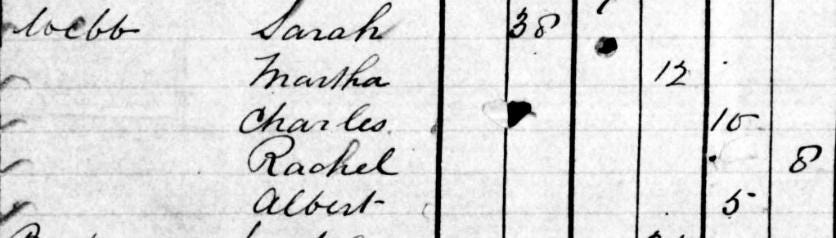 Webb Sarah 38
Martha 12
Charles 10
Rachel 8
Albert 5